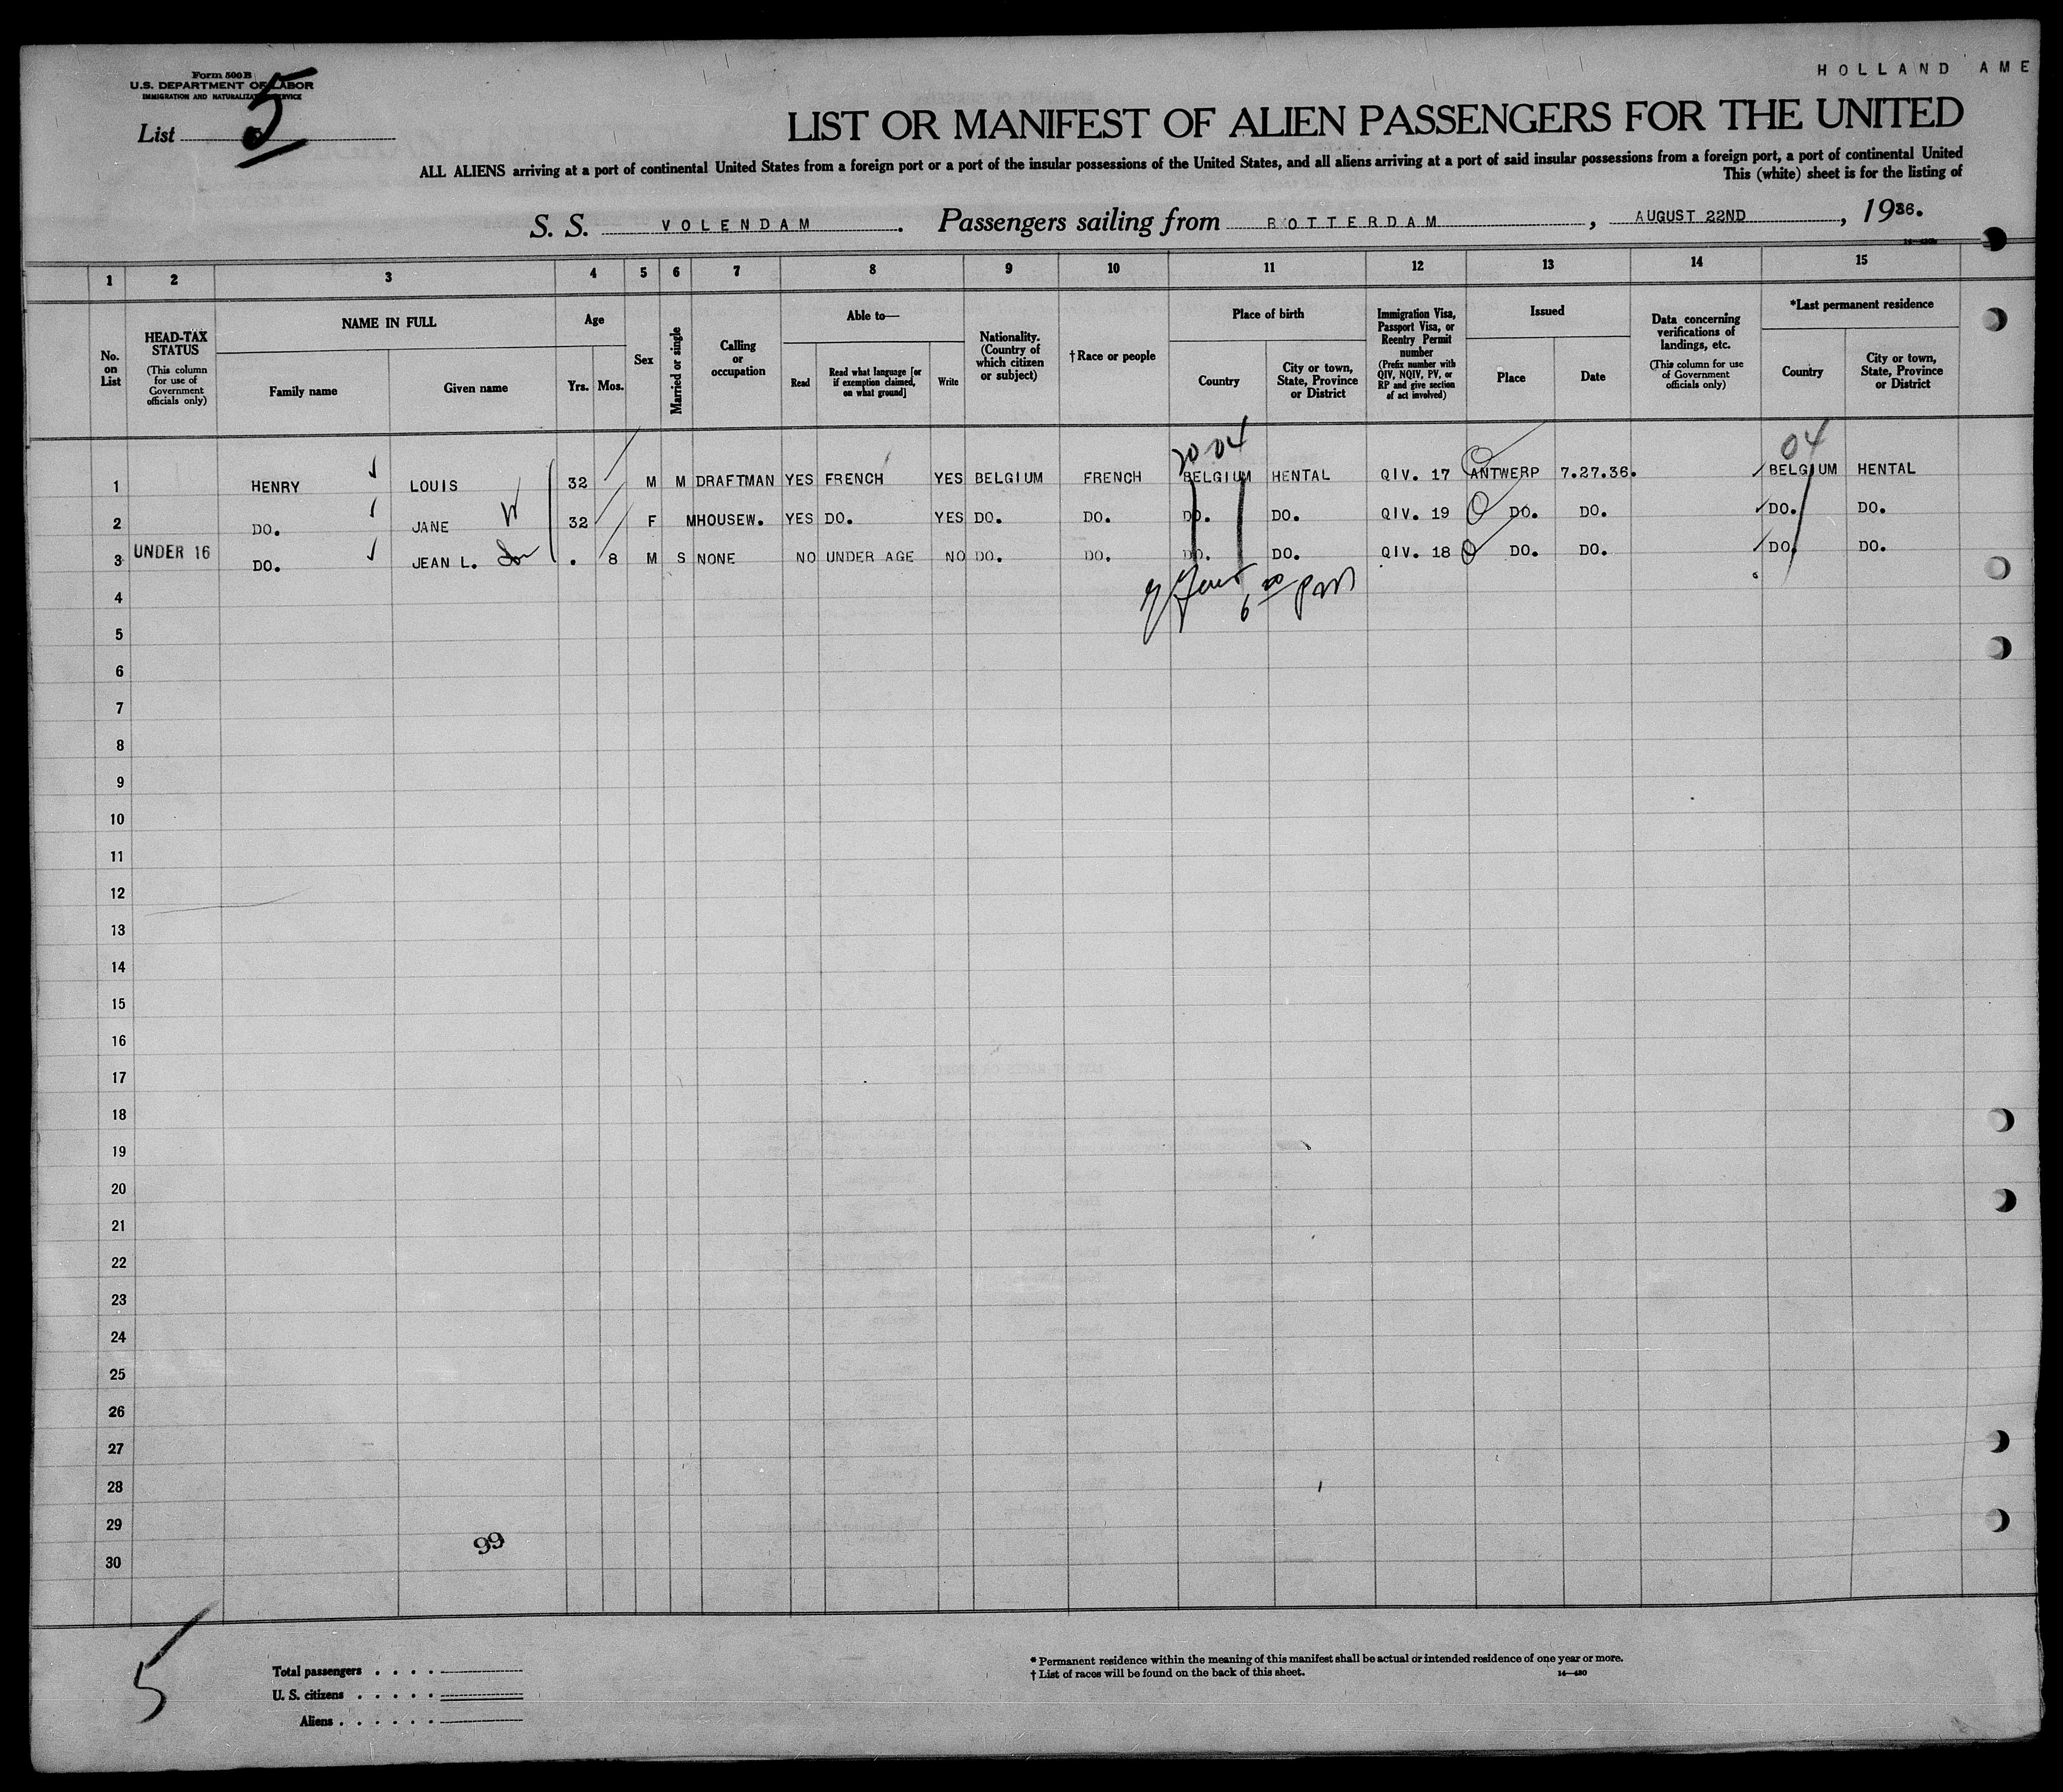 Form 500 B
U.S. DEPARTMENT OF LABOR
IMMIGRATION AND NATURALIZATION SERVICE
List 5
HOLLAND AME
LIST OR MANIFEST OF ALIEN PASSENGERS FOR THE UNITED
ALL ALIENS arriving at a port of continental United States from a foreign port or a port of the insular possessions of the United States, and all aliens arriving at a port of said insular possessions from a foreign port, a port of continental United
This (white) sheet is for the listing of
S. S. VOLENDAM. Passengers sailing from ROTTERDAM, AUGUST 22ND, 1936.
1 2 3 4 5 6 7 8 9 10 11 12 13 14 15
No. on List
HEAD-TAX STATUS (This column for use of Government officials only)
NAME IN FULL
Family name Given name
Age
Yrs. Mos.
Sex
Married or single
Calling or occupation
Able to—
Read Read what language [or if exemption claimed, on what ground] Write
Nationality. (Country of which citizen or subject)
†Race or people
Place of birth
Country City or town, State, Province or District
Immigration Visa, Passport Visa, or Reentry Permit number (Prefix number with QIV, NQIV, PV, or RP and give section of act involved)
Issued
Place Date
Data concerning verifications of landings, etc. (This column for use of Government officials only)
*Last permanent residence
Country City or town, State, Province or District
04 04
1 HENRY LOUIS 32 M M DRAFTMAN YES FRENCH YES BELGIUM FRENCH BELGIUM HENTAL QIV. 17 ANTWERP 7.27.36. BELGIUM HENTAL
2 DO. JANE W 32 F M HOUSEW. YES DO. YES DO. DO. DO. DO. QIV. 19 DO. DO. DO. DO.
3 UNDER 16 DO. JEAN L. 8 M S NONE NO UNDER AGE NO DO. DO. DO. DO. QIV. 18 DO. DO. DO. DO.
4
5
6
7
8
9
10
11
12
13
14
15
16
17
18
19
20
21
22
23
24
25
26
27
28
29
30
99
5
Total passengers
U. S. citizens
Aliens
* Permanent residence within the meaning of this manifest shall be actual or intended residence of one year or more.
† List of races will be found on the back of this sheet. 14—430